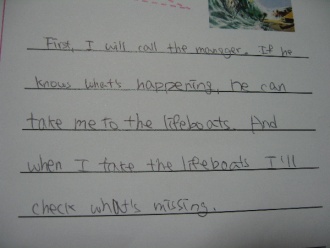 First, I will call the manager. If he
knows what's happening, he can
take me to the lifeboats. And
when I take the lifeboats I'll
check what's missing.